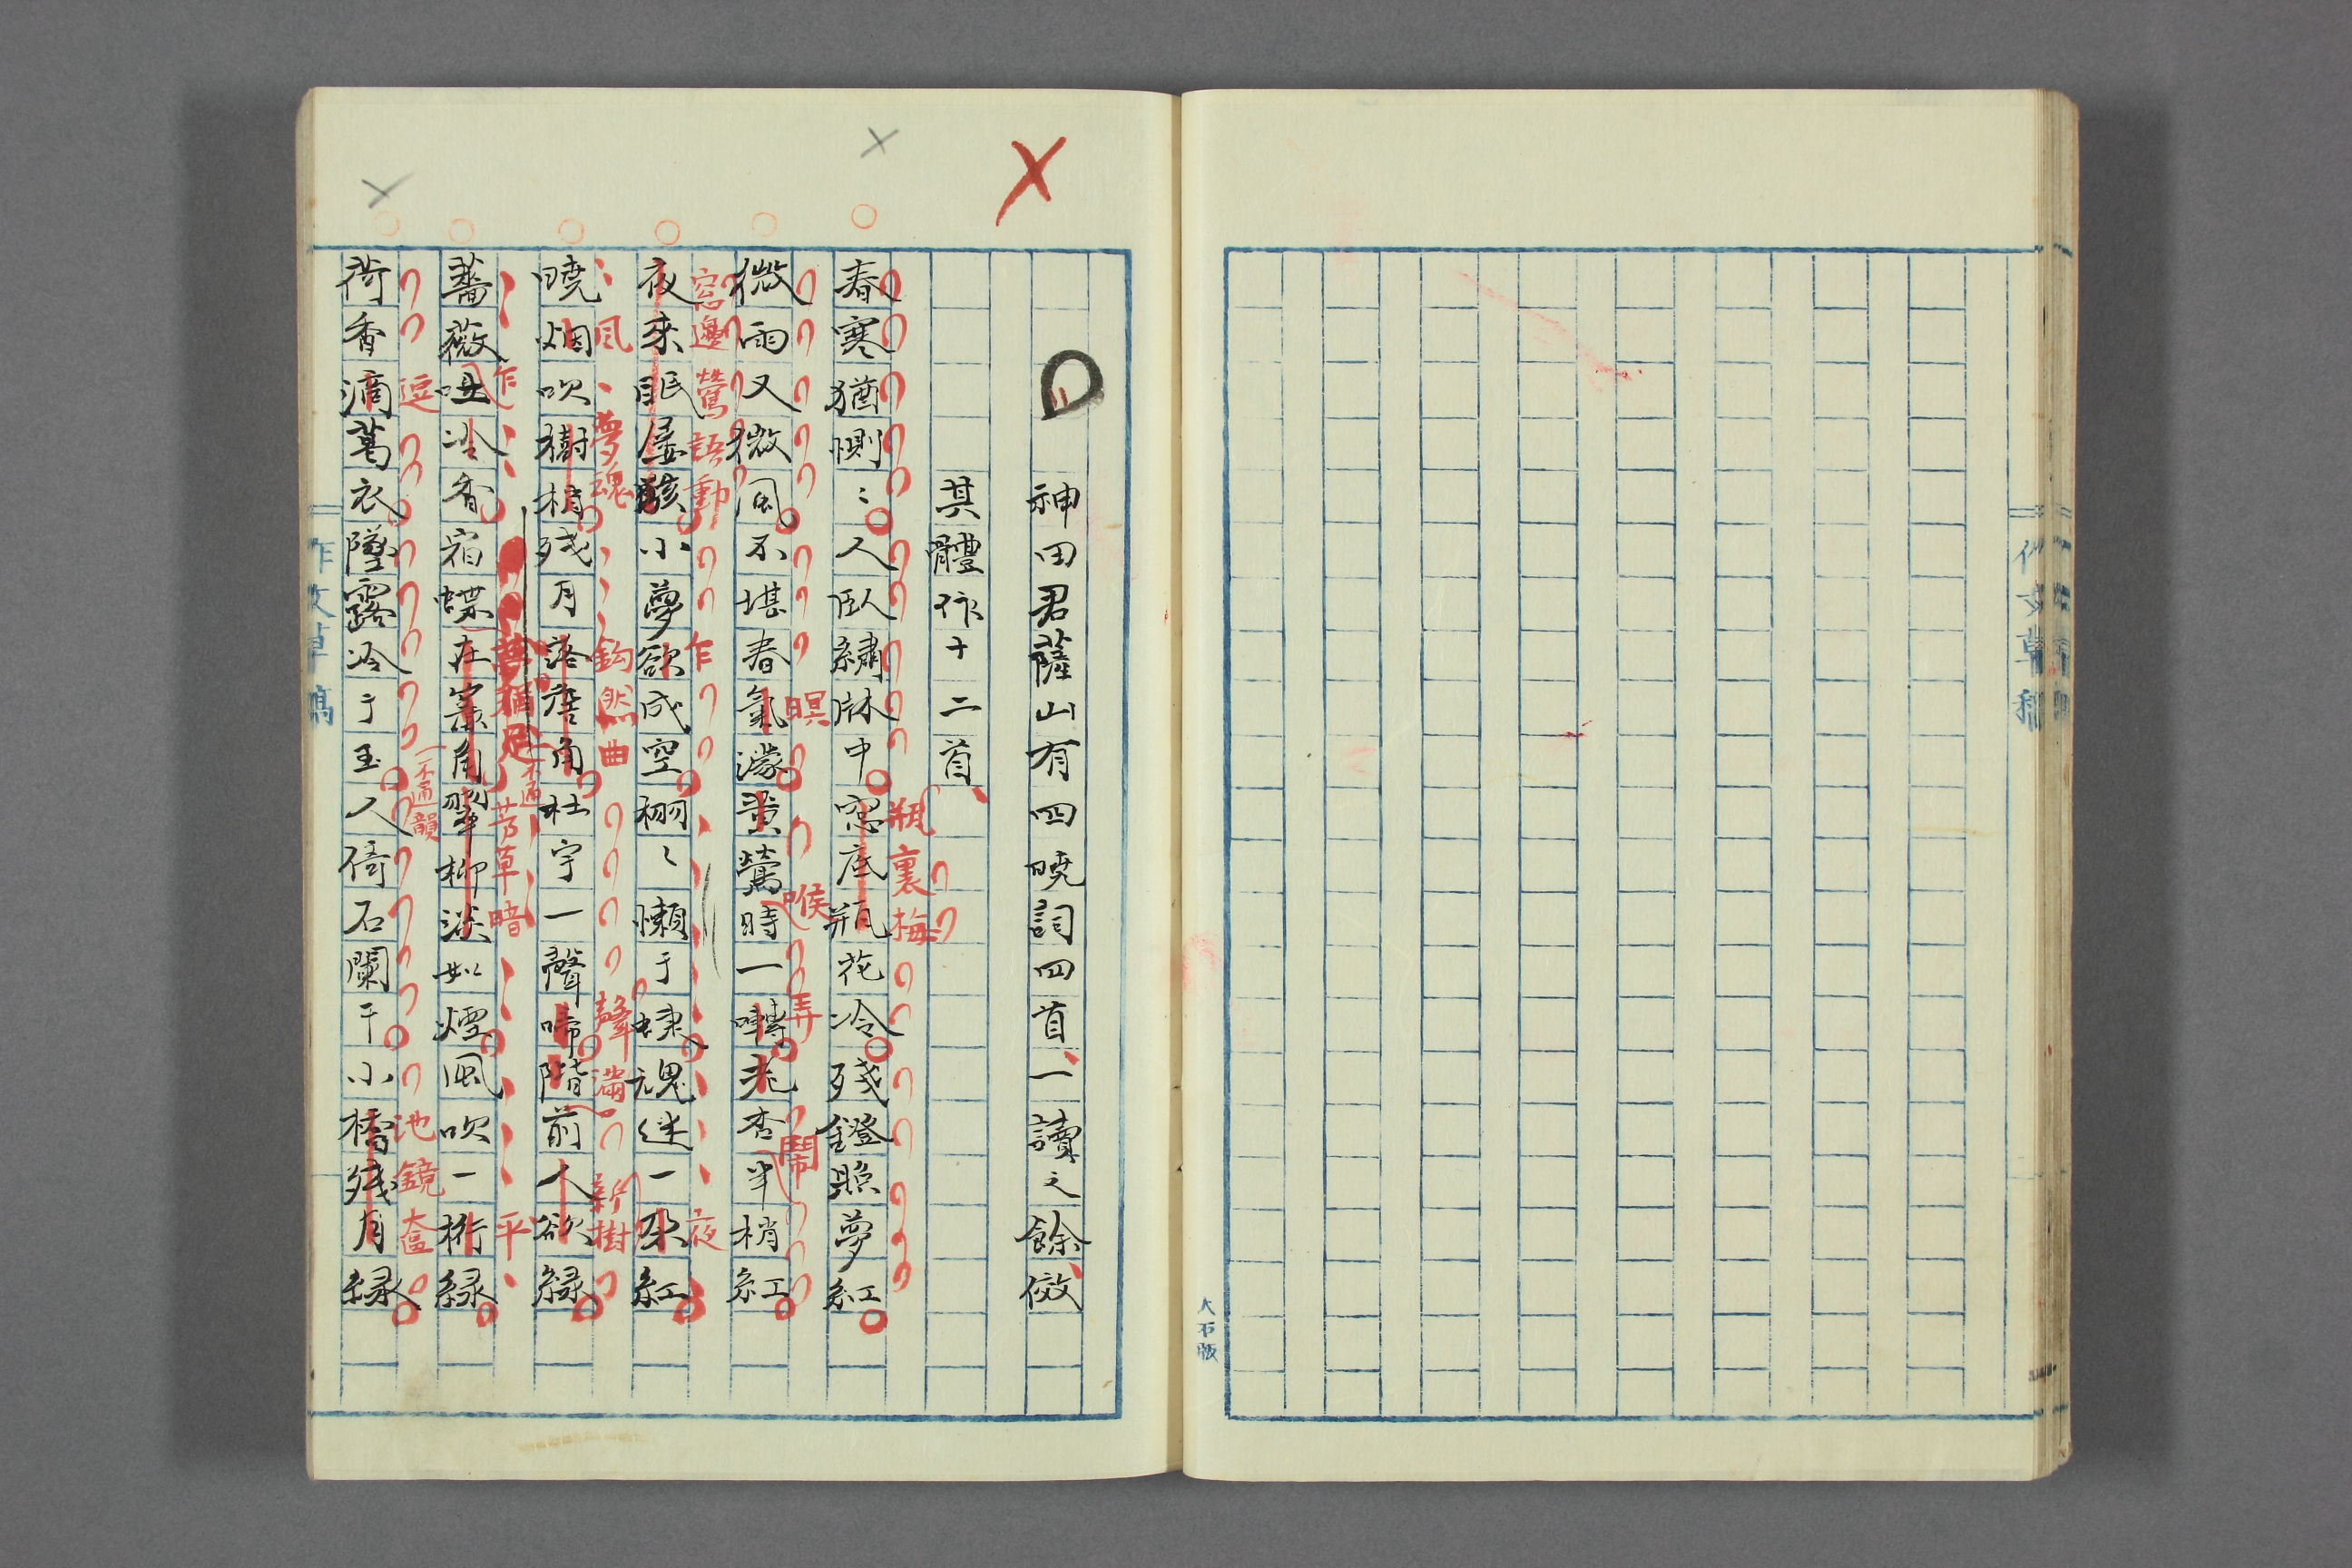 作文草稿
大石版
神田君薩山有四曉詞四首一讀之餘傚
其體作十二首
春寒猶惻〻人臥繡牀中窓底瓶花冷殘鐙照夢紅
瓶裏梅
微雨又微風不堪春氣濛黃鶯時一囀先杏半梢紅
暝
喉
弄
鬧
夜來眠屡駭小夢欲成空栩〻懶于蝶魂迷一朶紅
窓邊鶯語動
乍
夜
曉烟吹樹梢殘月落唐角杜宇一聲啼階前人欲綠
風
夢魂
鈎然曲
聲滿
新樹
薔薇咀冷香宿蝶在窠角翠柳淡如煙風吹一桁綠
乍
不通
芳草暗
平
荷香滴葛衣墜露冷于玉人倚石闌干小橋殘月綠
逗
不通韻
池鏡奩
作文草稿